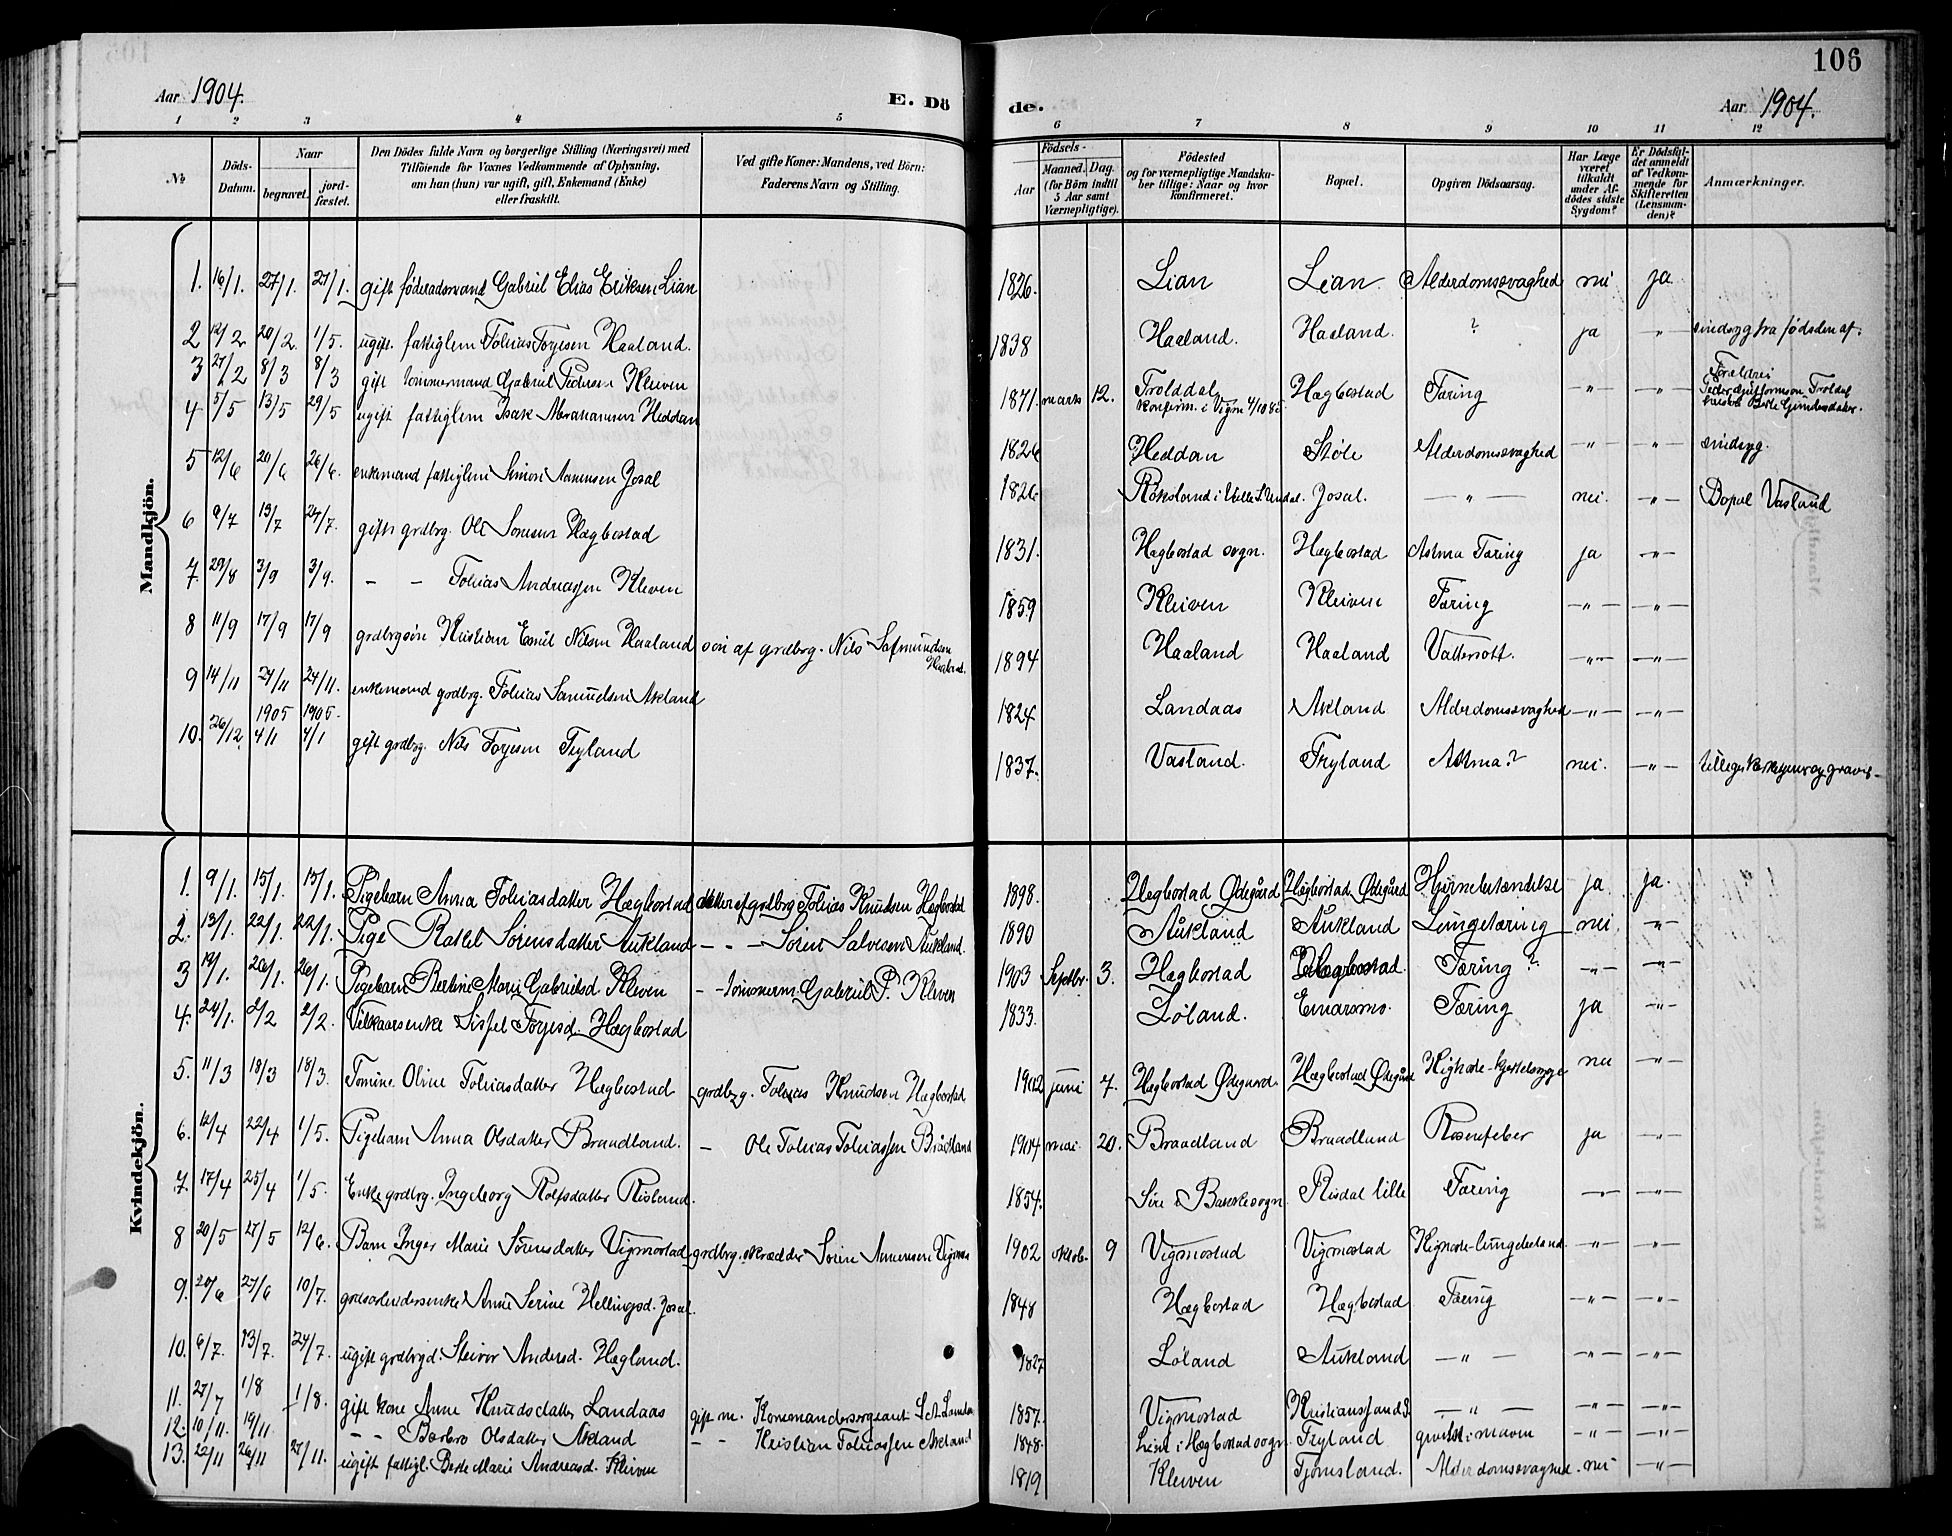 106
Aar 1904.
E. Dö
de.
Aar 1904.
1 2 3 4 5
6 7 8 9 10 11 12
№
Döds-
Datum.
Naar
begravet.
jord-
fæstet.
Den Dödes fulde Navn og borgerlige Stilling (Næringsvei) med
Tilföiende for Voxnes Vedkommende af Oplysning,
om han (hun) var ugift, gift, Enkemand (Enke)
eller fraskilt.
Ved gifte Koner: Mandens, ved Börn:
Faderens Navn og Stilling.
Födsels-
Aar
Maaned. Dag.
(for Börn indtil
5 Aar samt
Værnepligtige).
Födested
og for værnepligtige Mandska-
ber tillige: Naar og hvor
konfirmeret.
Bopæl.
Opgiven Dödsaarsag.
Har Læge
været
tilkaldt
under Af-
dödes sidste
Sygdom?
Er Dödsfal-
det anmeldt
af Vedkom-
mende for
Skifteretten
(Lensman-
den)?
Anmærkninger.
Mandkjön.
1. 16/1. 27/1. 27/1. gift föderaadsmand Gabriel Elias Eriksen Lian 1826. Lian Lian. Alderdomssvaghed nei ja
2 12/2 20/2. 1/5. ugift. fattiglem Tobias Torjesen Haaland. 1838 Haaland. Haaland. ? ja -"- sindssyg fra fødselen af.
3 27/2 8/3 8/3 gift tømmermand Gabriel Pedersen Kleven 1871. marts 12. Trolddal Hægbostad Tæring -"- -"- Forældre:
konfirm. i Vigm 4/10 85
4 5/5 13/5 29/5 ugift fattiglem Isak Abrahamsen Heddan 1826 Heddan Støle Alderdomssvaghed -"- -"- sindssyg.
5 12/6 20/6 26/6. enkemand fattiglem Simon Aanensen Josal 1826 Josal. -"- nei. -"- Bopæl Vasland
6 9/7 13/7 27/7. gift grdbrg. Ole Sørensen Hægbostad 1831. Hægbostad sogn. Hægbostad Astma Tæring ja -"-
7. 29/8 3/9 3/9. - - Tobias Andreassen Kleven 1859 Kleiven Kleiven Tæring -"- -"-
8 11/9 17/9 17/9 grdbrgsøn Kristian Emil Nilsen Haaland søn af grdbrg. Nils Salmundsen
Haaland.
1894 Haaland Haaland Vattersott. -"- -"-
9 14/11 24/11 24/11. enkemand grdbrg. Tobias Samuelsen Akland 1824 Landaas Akland Alderdomssvaghed -"- -"-
1905 1905
10. 26/12. 4/1 4/1 gift grdbrg. Nils Torjesen Fryland 1837. Vasland. Fryland Astma? nei. -"-
Kvindekjön.
1. 9/1. 15/1. 15/1. Pigebarn Anna Tobiasdatter Hægbostad datter af grdbrg Tobias Knudsen Hægbostad 1898. Hægbostad Ødegård Hægbostad Ødegård Hjernebetændelse ja ja.
2. 13/1. 22/1. 22/1. Pige Rakel Sørensdatter Aukland - - - Søren Salvesen Aukland. 1890 Aukland Aukland Lungetæring nei. -"-
3 19/1. 26/1. 26/1. Pigebarn Bertine Marie Gabrielsd. Kleven - - tømmerm. Gabriel P. Kleven 1903 Septbr. 3. Hægbostad Hægbostad. Tæring? -"- -"-
4. 24/1. 2/2 2/2. Vilkaarsenke Sissel Torjesd. Hægbostad 1833. Løland. Tæring ja -"-
5. 11/3 18/3 18/3. Tomine Oline Tobiasdatter Hægbostad grdbrg. Tobias Knudsen Hægbostad 1902 juni 7. Hægbostad Ødegaard. Hægbostad Ødegård nei -"-
6. 12/4 22/4 1/5. Pigebarn Anna Olsdatter Braadland. - Ole Tobias Tobiassen Brådland 1904 mai 20. Braadland Braadland Rosenfeber ja -"-
7. 17/4 25/4 1/5. Enke grdbrg. Ingeborg Rolfsdatter Risland. 1854. Sire i Bakke sogn. Risdal lille Tæring -"- -"-
8 20/5 27/5 12/6. Barn Inger Marie Sørensdatter Vigmostad grdbrg. skrædder Søren Aanensen Vigmos 1902 oktob. 9 Vigmostad Vigmostad -"- -"-
9. 20/6 27/6 10/7. Anne Serine Hellingsd. Josal. 1848 Hægbostad Hægbostad Tæring -"- -"-
10. 6/7. 13/7. 24/7. ugift grdbrgd. Steinor Andersd. Hægland. 1827 Løland Aukland -"- -"- -"-
11. 27/7 1/8 1/8. gift kone Anne Knudsdatter Landaas gift m. Kommandersergeant 1857. Vigmostad Kristianssand S. -"- -"- -"-
12. 10/11. 19/11. - - Barbro Olsdatter Akland - - Kristian Tobiassen Akland 1848. i Hægbostad sogn. Fryland -"- -"-
13. 22/11 26/11 27/11. ugift fattigl. Berte Marie Andreasd. Kleiven 1819 Kleiven Tjomsland. Alderdomssvaghed. nei -"-